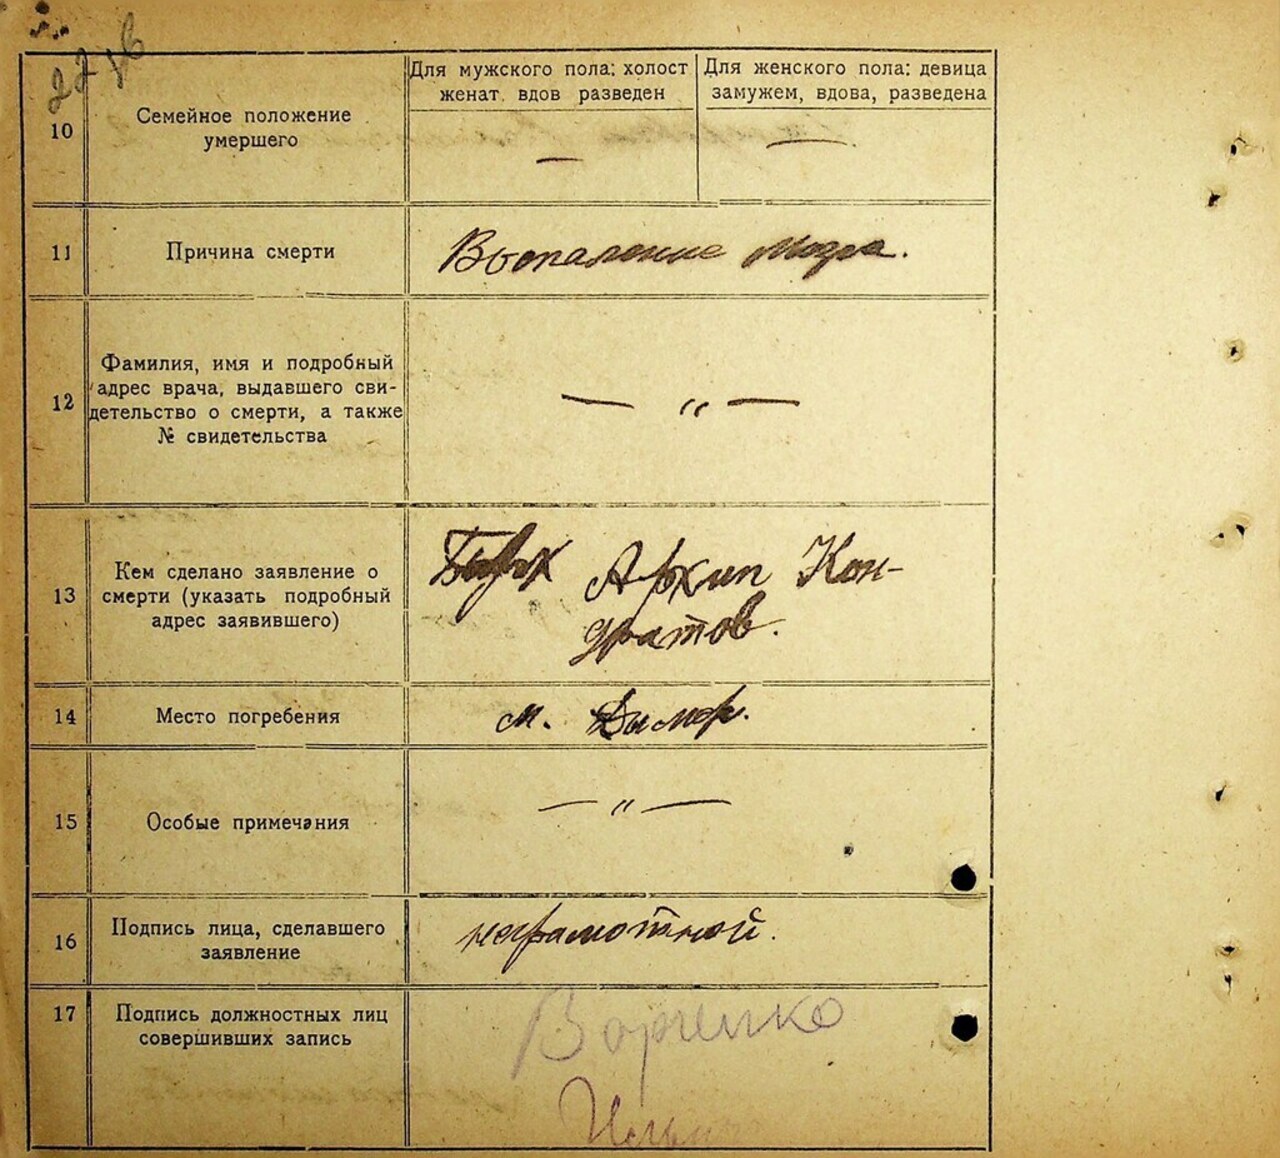 10
Семейное положение
умершего
Для мужского пола: холост
женат. вдов разведен
Для женского пола: девица
замужем, вдова, разведена
—
—
11
Причина смерти
Воспаление мозга.
12
Фамилия, имя и подробный
адрес врача, выдавшего сви-
детельство о смерти, а также
№ свидетельства
— „ —
13
Кем сделано заявление о
смерти (указать подробный
адрес заявившего)
Архип Кон-
дратов.
14
Место погребения
м. Дымер.
15
Особые примечания
— „ —
16
Подпись лица, сделавшего
заявление
неграмотной.
17
Подпись должностных лиц
совершивших запись